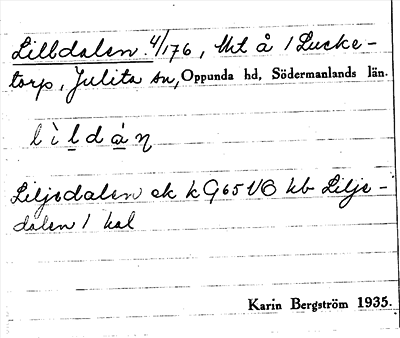 Lilldalen 4/176, Mt å 1 Lucke-
torp, Julita sn, Oppunda hd, Södermanlands län.
lìldáṇ
Liljedalen ek k G65 VÖ hb Lilje-
dalen 1 hal
Karin Bergström 1935.